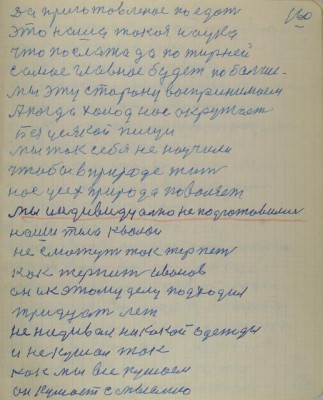 160
Да приготовленое поедат
Это наша такая наука
что послаже да по жирней
самое главное будет по болше.
мы эту сторону воспринимаем
А когда холод нас окружает
Без усякой пищи
мы так себя не научили
чтобы в природе жит
нас усех природа поволяет
мы индивидуално не подготовилис
наши тела
не смогут так терпет
как терпит иванов
он и к этому делу подходил
тридцат лет
не надивал никакой одежды
и не кушал так
как мы все кушаем
он кушает с мыслию